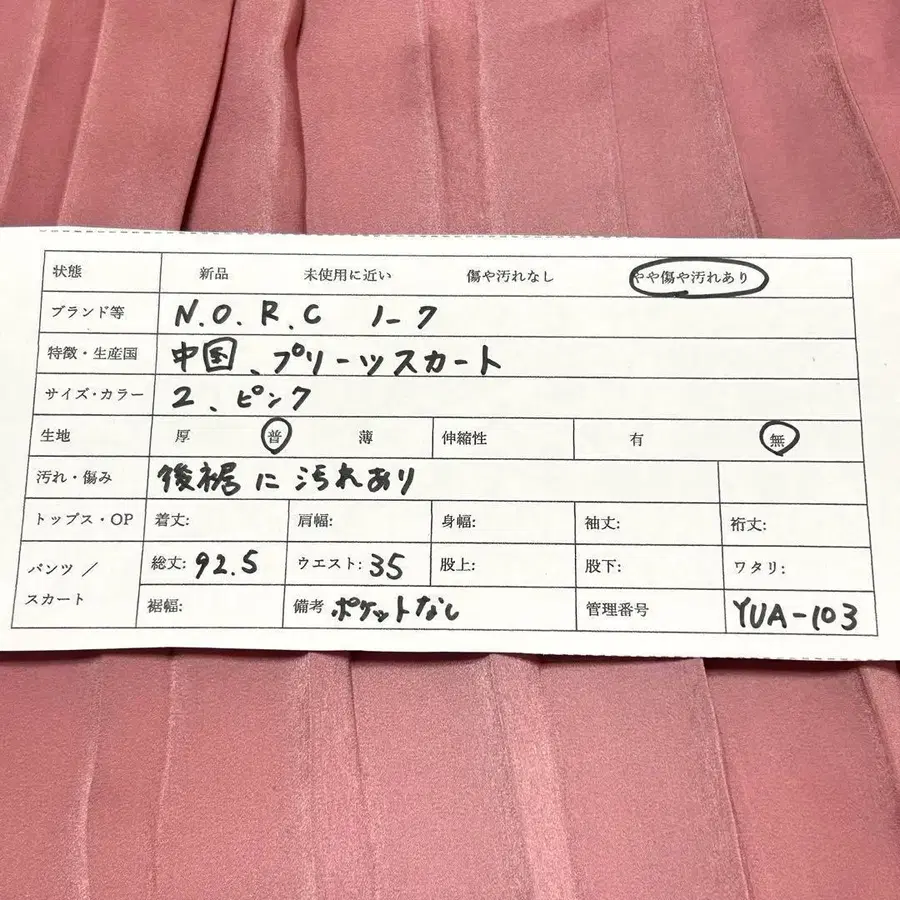 状態 新品 未使用に近い 傷や汚れなし やや傷や汚れあり
ブランド等 N.O.R.C ノーク
特徴・生産国 中国、プリーツスカート
サイズ・カラー 2、ピンク
生地 厚 普 薄 伸縮性 有 無
汚れ・傷み 後裾に汚れあり
トップス・OP 着丈: 肩幅: 身幅: 袖丈: 裄丈:
パンツ / スカート 総丈: 92.5 ウエスト: 35 股上: 股下: ワタリ:
裾幅: 備考 ポケットなし 管理番号 YUA-103